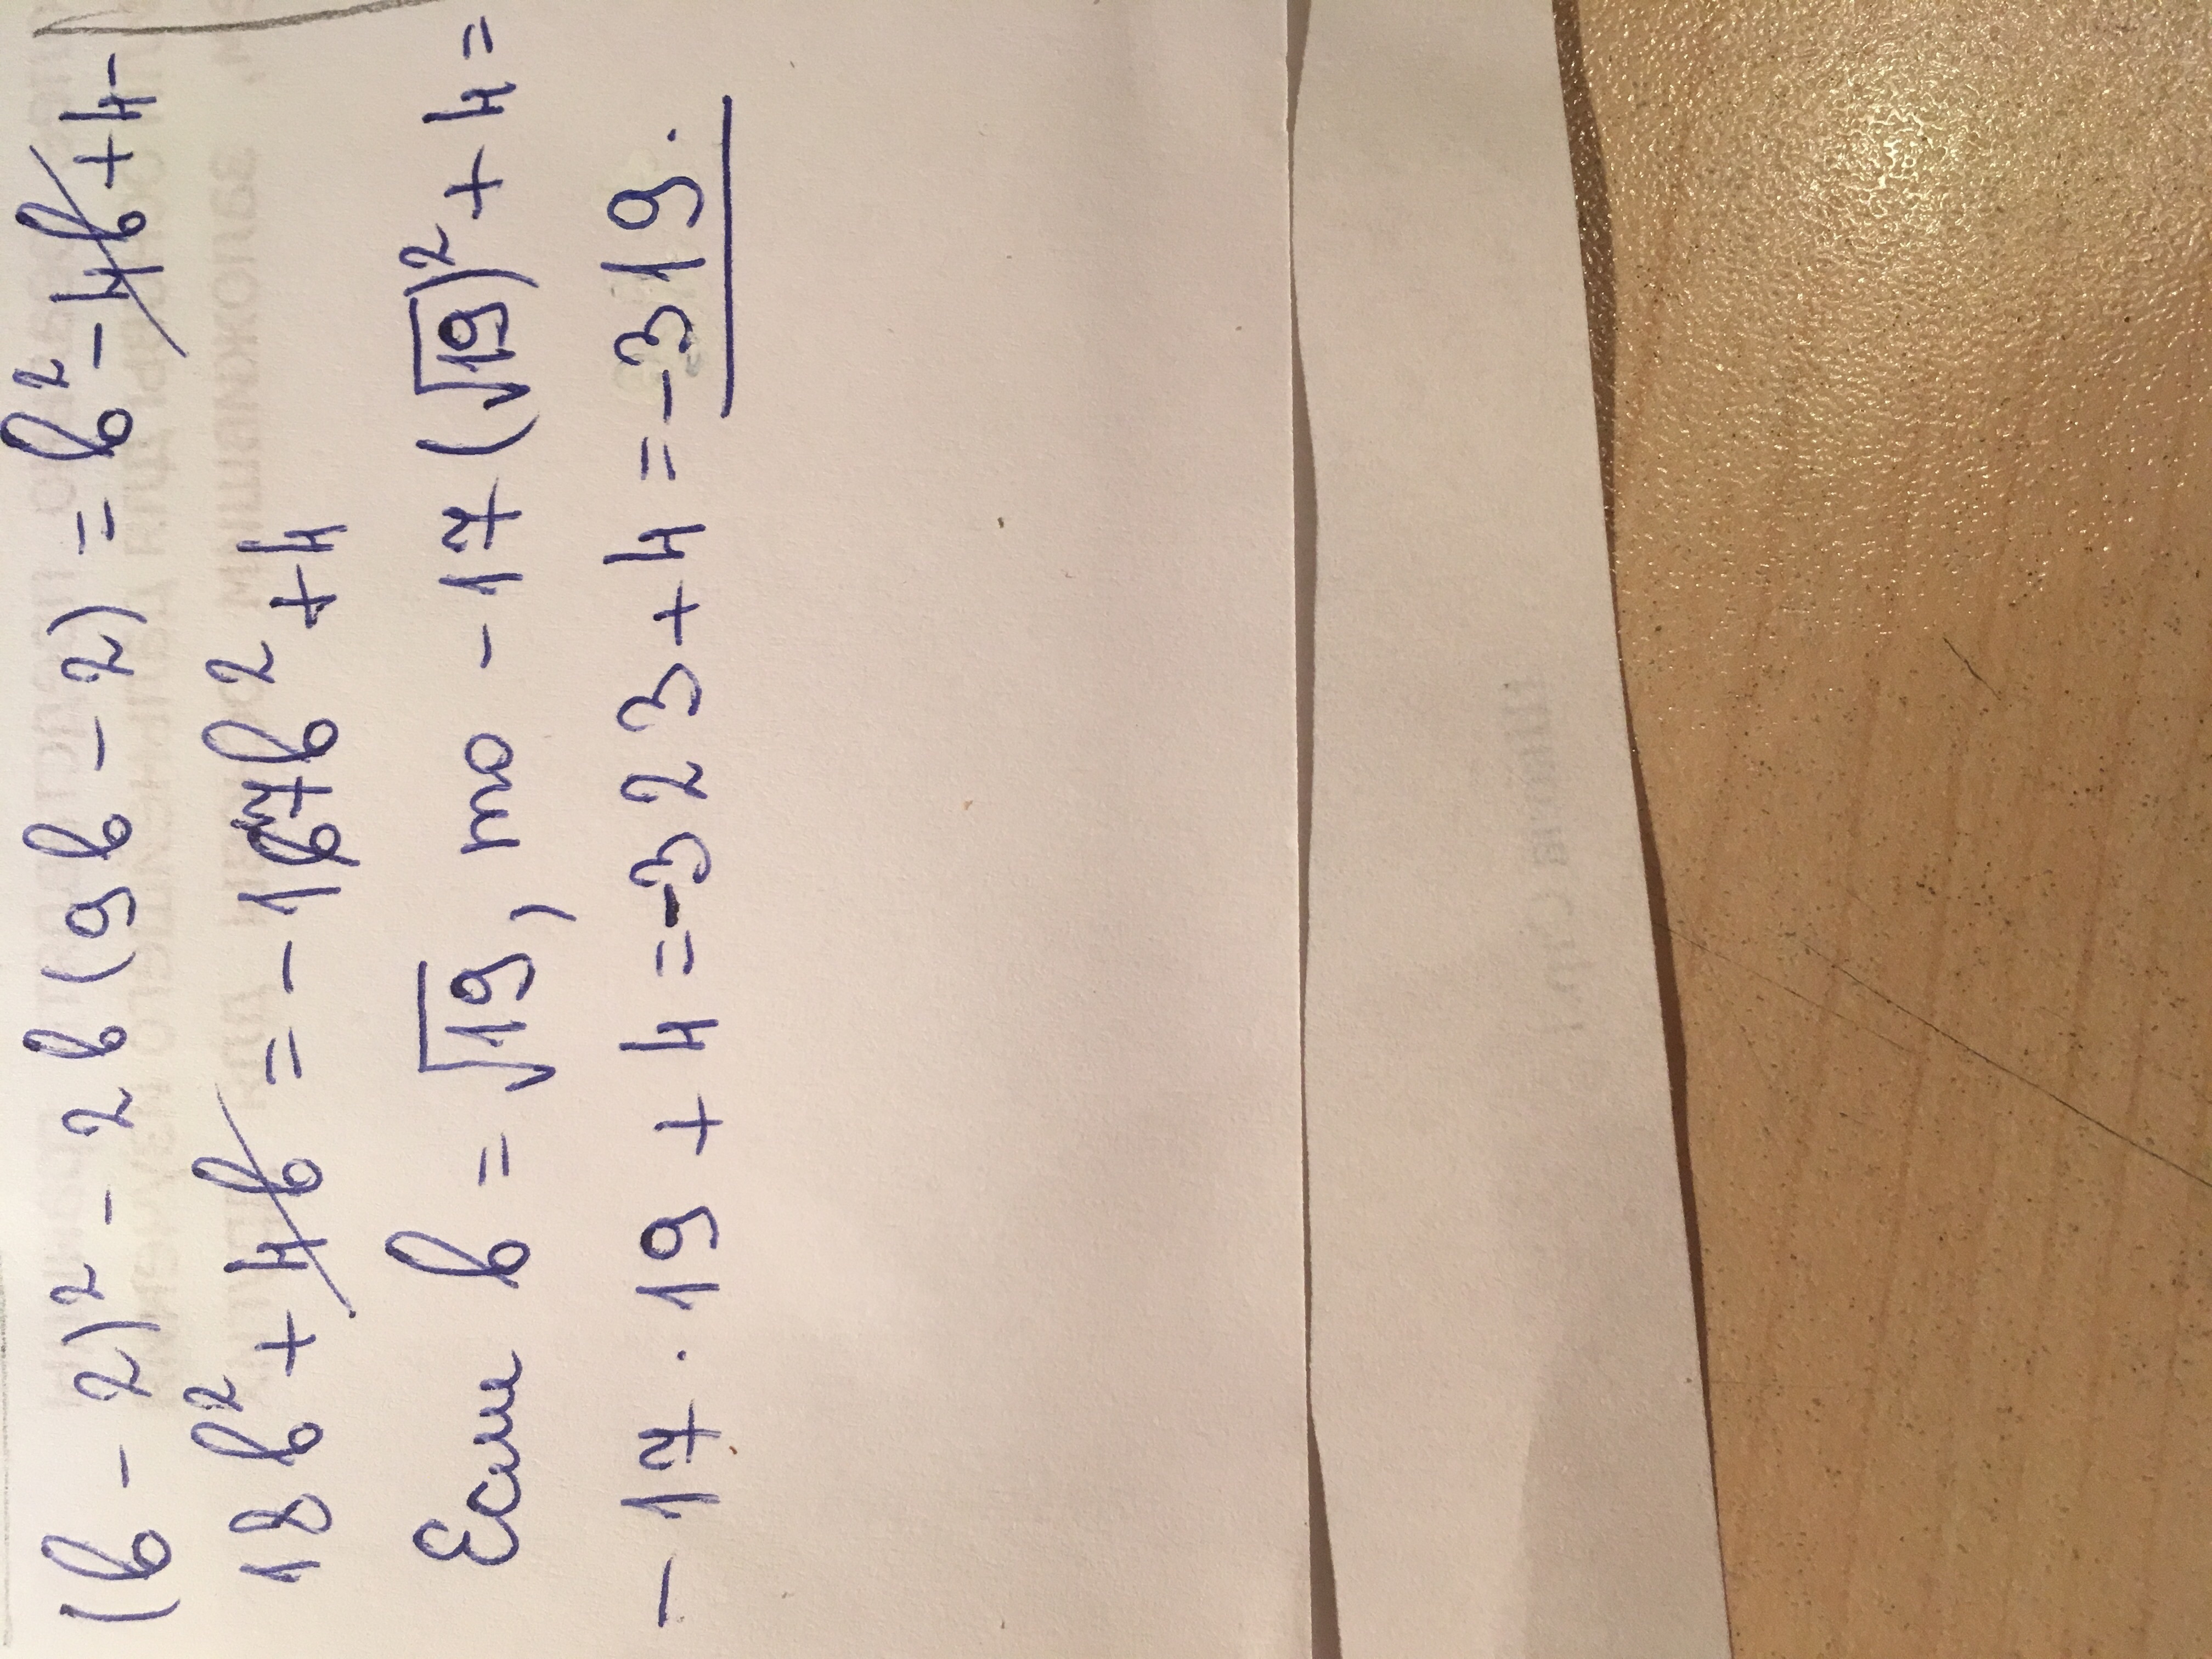 (b - 2)² - 2b(9b - 2) = b² - 4b + 4 -
18b² + 4b = -17b² + 4
Если b = √19, то -17(√19)² + 4 =
-17 · 19 + 4 = -323 + 4 = -319.